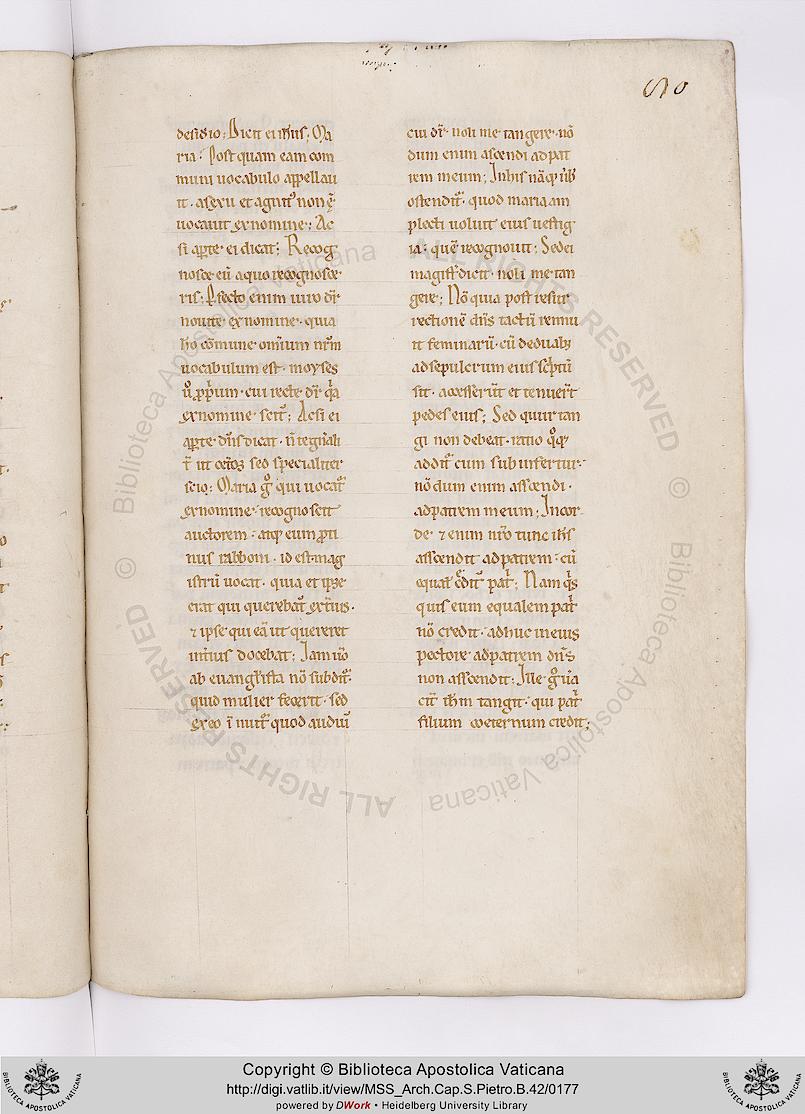 desidio; Dicit ei ih̅us; Ma
ria. Post quam eam com
muni uocabulo appellau
it. a sexu et agnit᷒ non ē
uocauit ex nomine; Ac
si aꝑte ei dicat; Recog
nosce eū a quo recognosce
ris; ꝑfecto enim uiro dr̄
nouite ex nomine. quia
ho com̄une omnium nr̄m
uocabulum est. moyses
ů ꝓprium. cui recte dr̄
ex nomine scit᷒; Ac si ei
aꝑte dn̄s dicat. n̄ te gn̄ali
t̄ ut cet̄os sed specialiter
scio; Maria gͦ qui uocat᷒
ex nomine recognoscit
auctorem. atq; eum ꝓti
nus rabboni. id est mag
istrū uocat. quia et ipse
erat qui querebat᷒ ext̄ius.
⁊ ipse qui eā ut quereret
int̄ius docebat; Iam u̅o
ab euangl̄ista nō subdit᷒.
quid mulier fecerit. sed
ex eo ī nuit᷒ quod audiu̅
cui dr̄ noli me tangere. nō
dum enim ascendi ad pat
rem meum; In his nāq; u̅b̅
ostendit᷒. quod maria am
plecti uoluit eius uestig
ia. quē recognouit; Sed ei
magist̄ dicit. noli me tan
gere; Nō quia post resur
rectionē dn̄s tactū rennu
it feminarū. cū de duab;
ad sepulcrum eius sc̄ptū
sit. accesserūt et tenuer̄t
pedes eius; Sed quur tan
gi non debeat. ratio qͦq;
addit᷒ cum sub infertur.
nō dum enim ascendi.
ad patrem meum; In cor
de. ⁊ enim nr̄o tunc ih̅s
ascendit ad patrem. cū
equal̄ c̄dit᷒ pat̄; Nam q̄s
quis eum equalem pat̄
nō credit. adhuc in eius
pectore. ad patrem dn̄s
non ascendit; Ille gͦ ū̅a
cit̄ ih̅m tangit. qui pat̄
filium coeternum credit;
Copyright © Biblioteca Apostolica Vaticana
http://digi.vatlib.it/view/MSS_Arch.Cap.S.Pietro.B.42/0177
powered by DWork • Heidelberg University Library